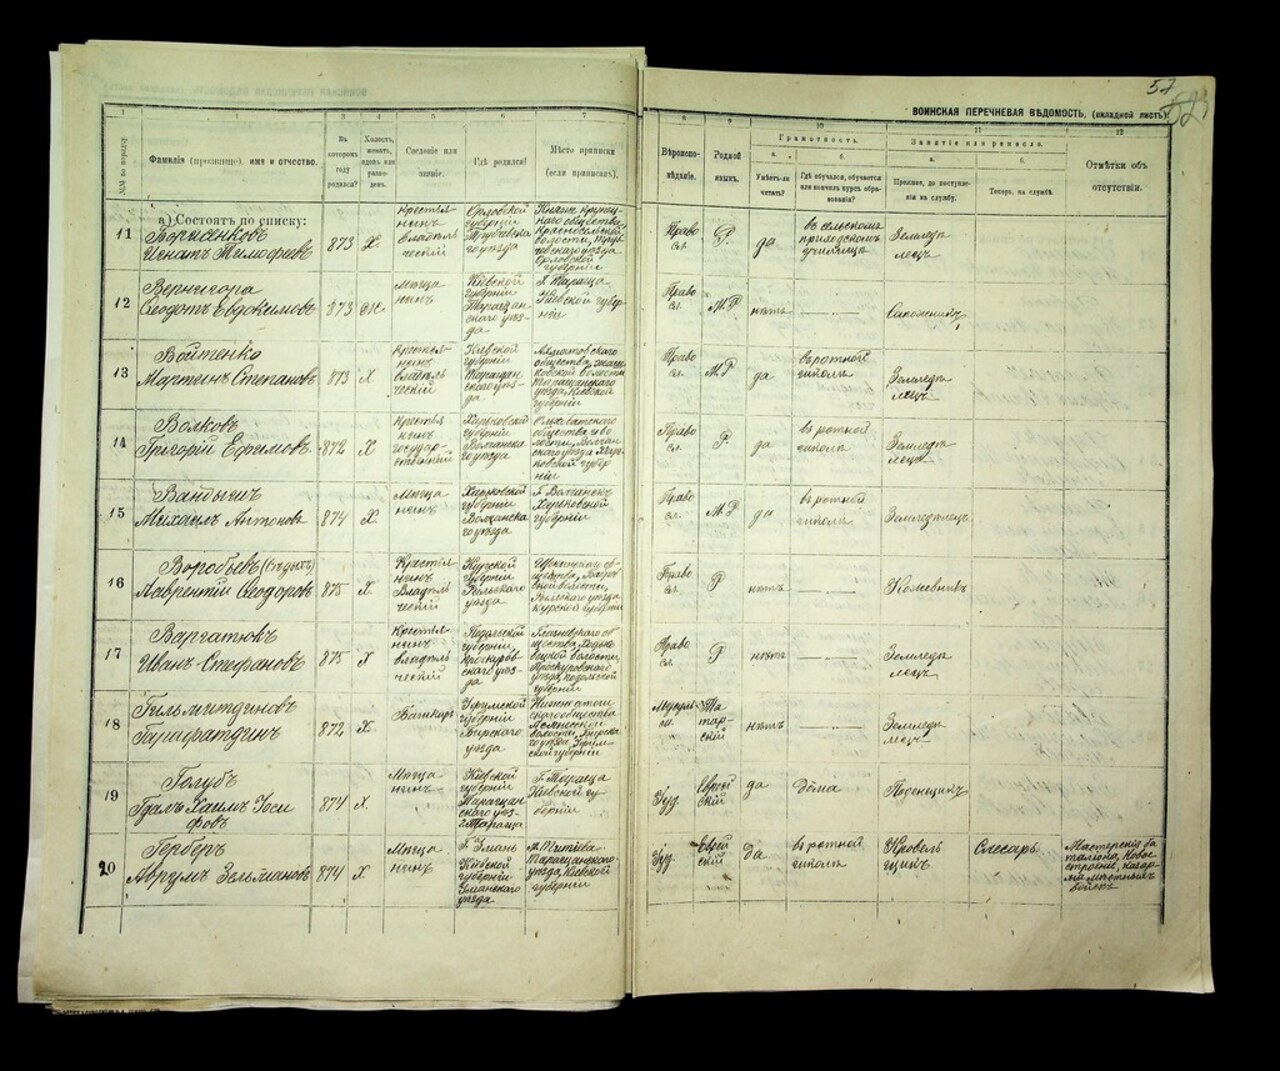 52
ВОИНСКАЯ ПЕРЕЧНЕВАЯ ВѢДОМОСТЬ, (вкладной листъ)
1
3
4
5
6
7
8
9
10
11
12
№№ по порядку
Фамилія (прозвище), имя и отчество.
Въ которомъ году родился?
Холостъ, женатъ, вдовъ или разведенъ.
Сословіе или званіе.
Гдѣ родился?
Мѣсто приписки (если приписанъ).
Вѣроисповѣданіе.
Родной языкъ.
Грамотность.
а.
Умѣетъ-ли читать?
б.
Гдѣ обучался, обучается или кончилъ курсъ образованія?
Занятіе или ремесло.
а.
Прежнее, до поступленія на службу.
б.
Теперь, на службѣ.
Отмѣтки объ отсутствіи.
а) Состоятъ по списку:
11
Борисенковъ
Игнатъ Тимофеевъ
873
Х.
Крестья
нинъ
владѣль
ческій
Орловской
губерніи
Трубчевска
го уѣзда
общества,
Красносельской
волости, Труб
чевскаго уѣзда
Орловской
губерніи
Право
сл.
Р.
да
въ сельскомъ
приходскомъ
училищѣ
Земледѣ
лецъ
12
Вернигора
Ѳеодотъ Евдокимовъ
873
Ж.
Мѣща
нинъ
Кіевской
губерніи
Таращан
скаго уѣз-
да
г. Тараща
Кіевской губер
ніи
Право
сл.
М.Р
нѣтъ
— „ —
Сапожникъ
13
Войтенко
Мартинъ Степановъ
873
Х
Крестья-
нинъ
владѣль
ческій
Кіевской
губерніи
Таращан
скаго уѣз-
да
общества,
ковской волости
Таращанскаго
уѣзда, Кіевской
губерніи
Право
сл.
М.Р
да
въ ротной
школѣ
Земледѣ
лецъ
14
Волковъ
Григорій Ефимовъ
872
Х
Крестья
нинъ
государ-
ственный
Харьковской
губерніи
Волчанска
го уѣзда
Ольховатскаго
общества и во
лости, Волчан
скаго уѣзда Харь
ковской губер
ніи
Право
сл.
Р.
да
въ ротной
школѣ
Земледѣ
лецъ
15
Вандышъ
Михаилъ Антоновъ
874
Х
Мѣща
нинъ
Харьковской
губерніи
Волчанска
го уѣзда
г. Волчанскъ
Харьковской
губерніи
Право
сл.
М.Р
да
въ ротной
школѣ
Земледѣлецъ
16
Воробьевъ
Лаврентій Ѳеодоровъ
875
Х
Крестья-
нинъ
Владѣль
ческій
Курской
губерніи
Рыльскаго
уѣзда
об-
щества,
ской волости,
Рыльскаго уѣзда
Курской губерніи
Право
сл.
Р
нѣтъ
— „ —
Кожевникъ
17
Варгатюкъ
Иванъ Стефановъ
875
Х
Крестья
нинъ
владѣль
ческій
Подольской
губерніи,
Проскуров-
скаго уѣз-
да
об
щества,
волости,
Проскуровскаго
уѣзда, Подольской
губерніи
Право
сл.
Р
нѣтъ
— „ —
Земледѣ
лецъ
18
Гильмитдиновъ
Гарафатдинъ
872
Х.
Башкиръ
Уфимской
губерніи
Бирскаго
уѣзда
скаго общества
волости, Бирска
го уѣзда, Уфим
ской губерніи
Мусуль
м.
Та
тар-
скій
нѣтъ
— „ —
Земледѣ
лецъ
19
Голубь
Гдаль Хаимъ Іоси
фовъ
874
Х.
Мѣща
нинъ
Кіевской
губерніи
Таращан
скаго уѣз-
г. Тараща
г. Тараща
Кіевской гу
берніи
Іуд.
Еврей
скій
да
дома
Поденщикъ
20
Герберъ
Аврумъ Зельмановъ
874
Х
Мѣща
нинъ
г. Умань
Кіевской
губерніи
Уманскаго
уѣзда
Таращанскаго
уѣзда, Кіевской
губерніи
Іуд.
Еврей
скій
да
въ ротной
школѣ
Кровель
щикъ
Слесарь
Мастерскія ба
таліона, Новое
строеніе, казар
ма мѣстныхъ
войскъ